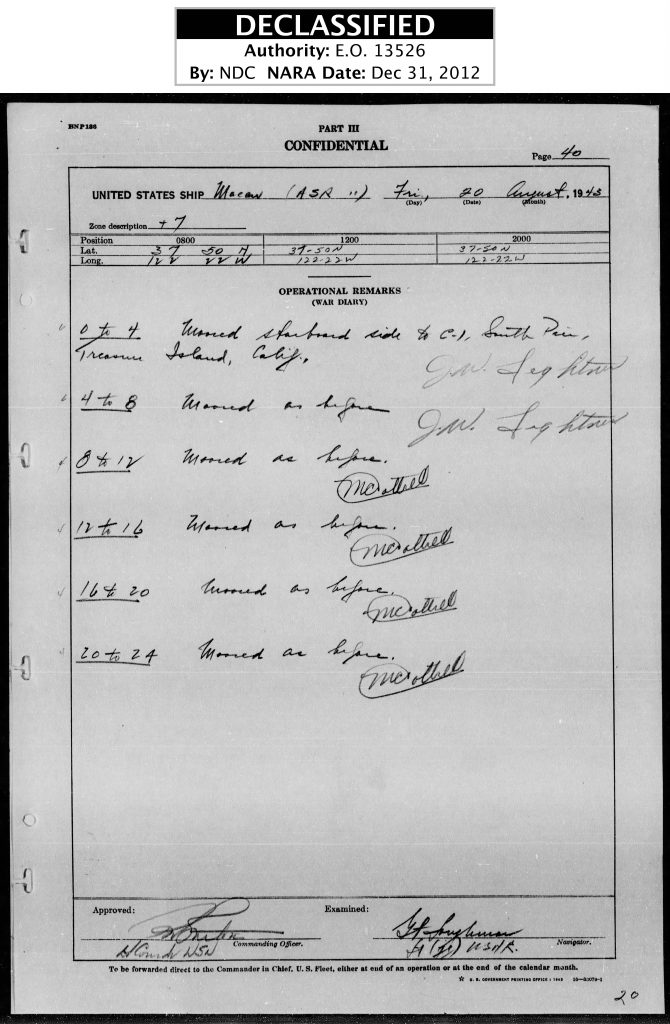 DECLASSIFIED
Authority: E.O. 13526
By: NDC NARA Date: Dec 31, 2012
BNP186
PART III
CONFIDENTIAL
Page 40
UNITED STATES SHIP Macaw (ASR 11) Fri, 20 August, 1943
(Day) (Date) (Month)
Zone description + 7
Position 0800 1200 2000
Lat. 37 50 N 37-50N 37-50N
Long. 122 22 W 122-22W 122-22W
OPERATIONAL REMARKS
(WAR DIARY)
0 to 4 Moored starboard side to C-1, South Pier,
Treasure Island, Calif.
J.W. Leightner
4 to 8 Moored as before
J.W. Leightner
8 to 12 Moored as before.
12 to 16 Moored as before.
16 to 20 Moored as before.
20 to 24 Moored as before.
Approved: Examined:
Commanding Officer. Navigator.
USN
USNR.
To be forwarded direct to the Commander in Chief, U. S. Fleet, either at end of an operation or at the end of the calendar month.
U. S. GOVERNMENT PRINTING OFFICE
20